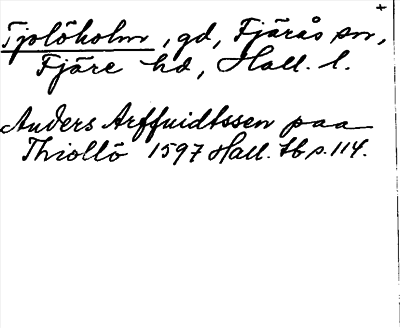 +
Tjolöholm, gd, Fjärås sn,
Fjäre hd, Hall. l.
Anders Arffuidtssen paa
Thiollö 1597 Hall. Hb s. 114.